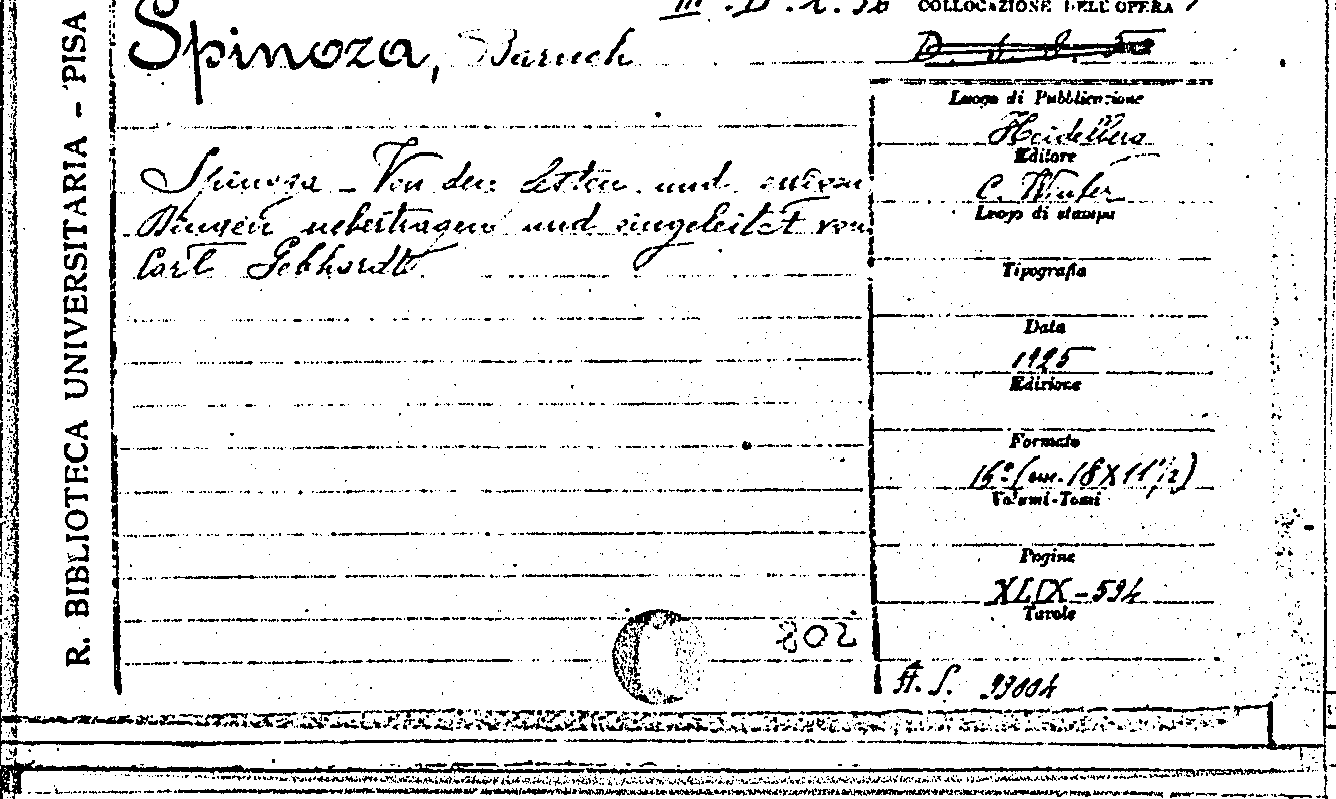 R. BIBLIOTECA UNIVERSITARIA - PISA
COLLOCAZIONE DELL'OPERA
Spinoza, Baruch
Spinoza - Von den festen und ewigen
Dingen uebertragen und eingeleitet von
Carl Gebhardt
Luogo di Pubblicazione
Heidelberg
Editore
C. Winter
Luogo di stampa
Tipografia
Data
1925
Edizione
Formato
16° (cm. 18X11 1/2)
Volumi-Tomi
Pagine
XLIX - 594
Tavole
802
A. S.